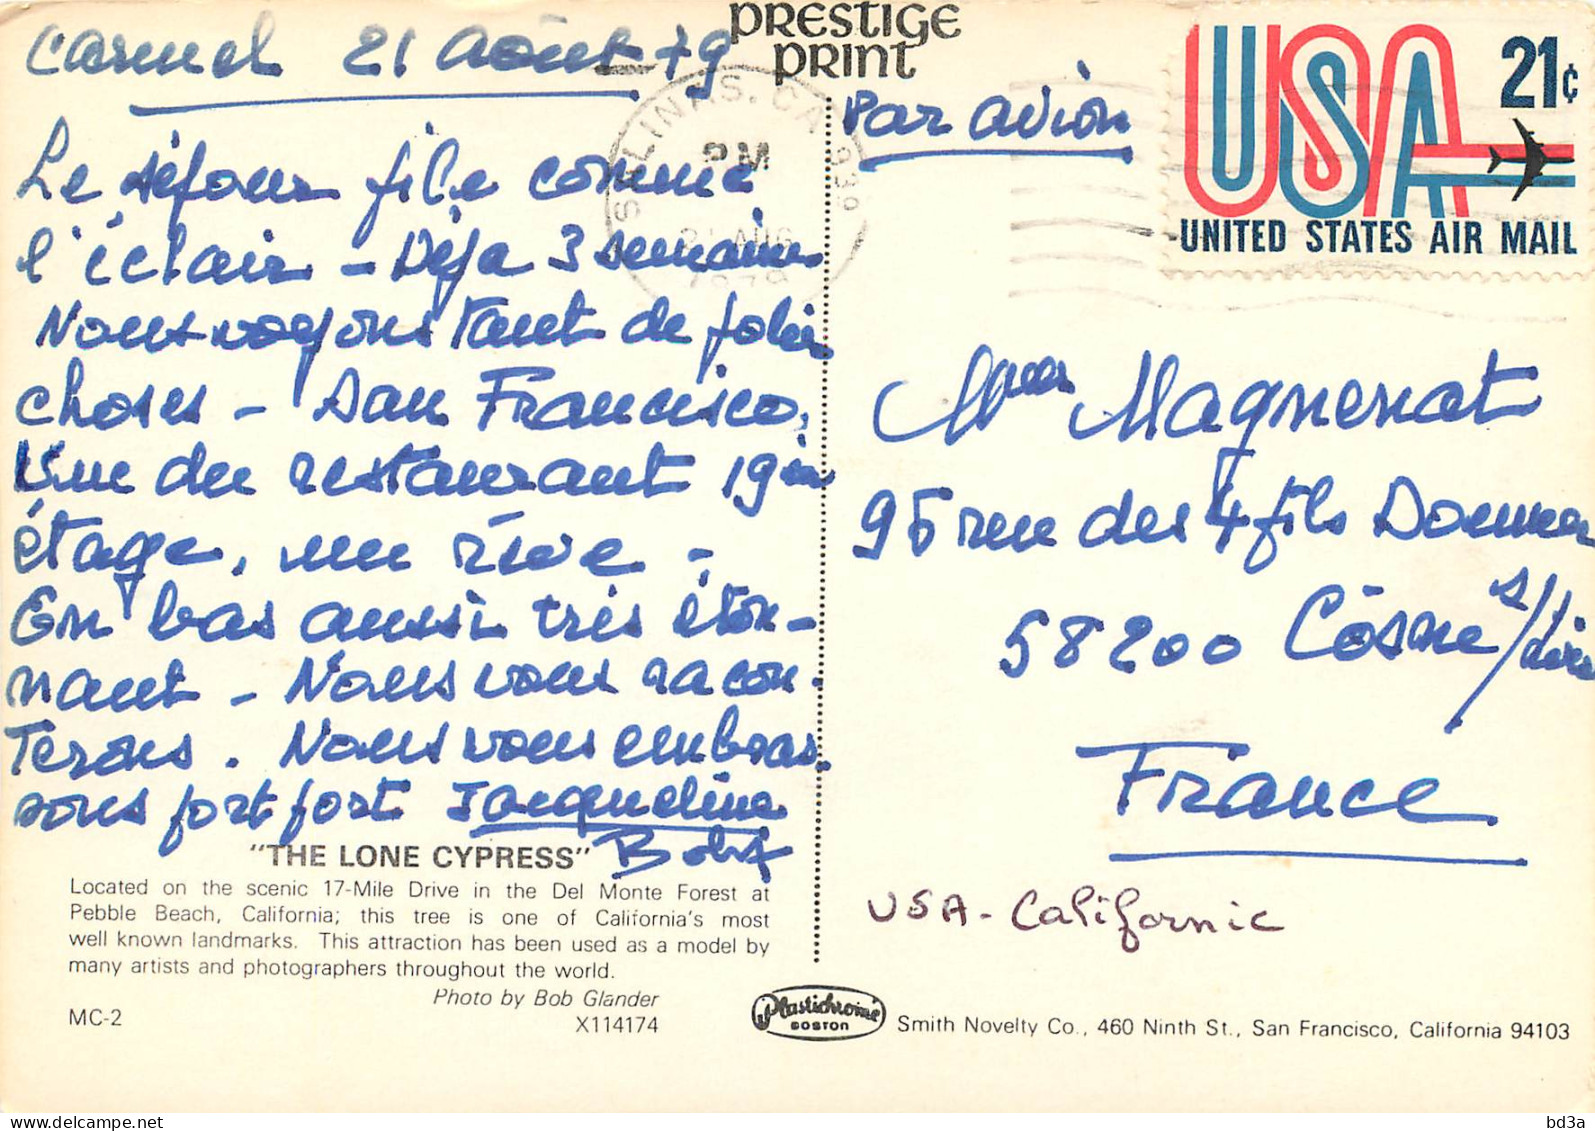 PRESTIGE
PRINT
Carmel 21 Août 79
Le séjour file comme
l'éclair - Déja 3 semaines
Nous voyons tant de jolies
choses - San Francisco,
Vue du restaurant 19èm
étage, un rêve -
En bas aussi très éton-
nant - Nous vous racon-
terons. Nous vous embras-
sons fort fort Jacqueline
"THE LONE CYPRESS"
Located on the scenic 17-Mile Drive in the Del Monte Forest at
Pebble Beach, California; this tree is one of California's most
well known landmarks. This attraction has been used as a model by
many artists and photographers throughout the world.
Photo by Bob Glander
MC-2
X114174
SALINAS, CA 939
PM
21 AUG
1979
Par avion
USA 21¢
UNITED STATES AIR MAIL
Mme Magnenat
95 rue des 4 fils Doumer
58200 Cosne s/Loire
France
USA - Californie
Plastichrome
BOSTON
Smith Novelty Co., 460 Ninth St., San Francisco, California 94103
bd3a